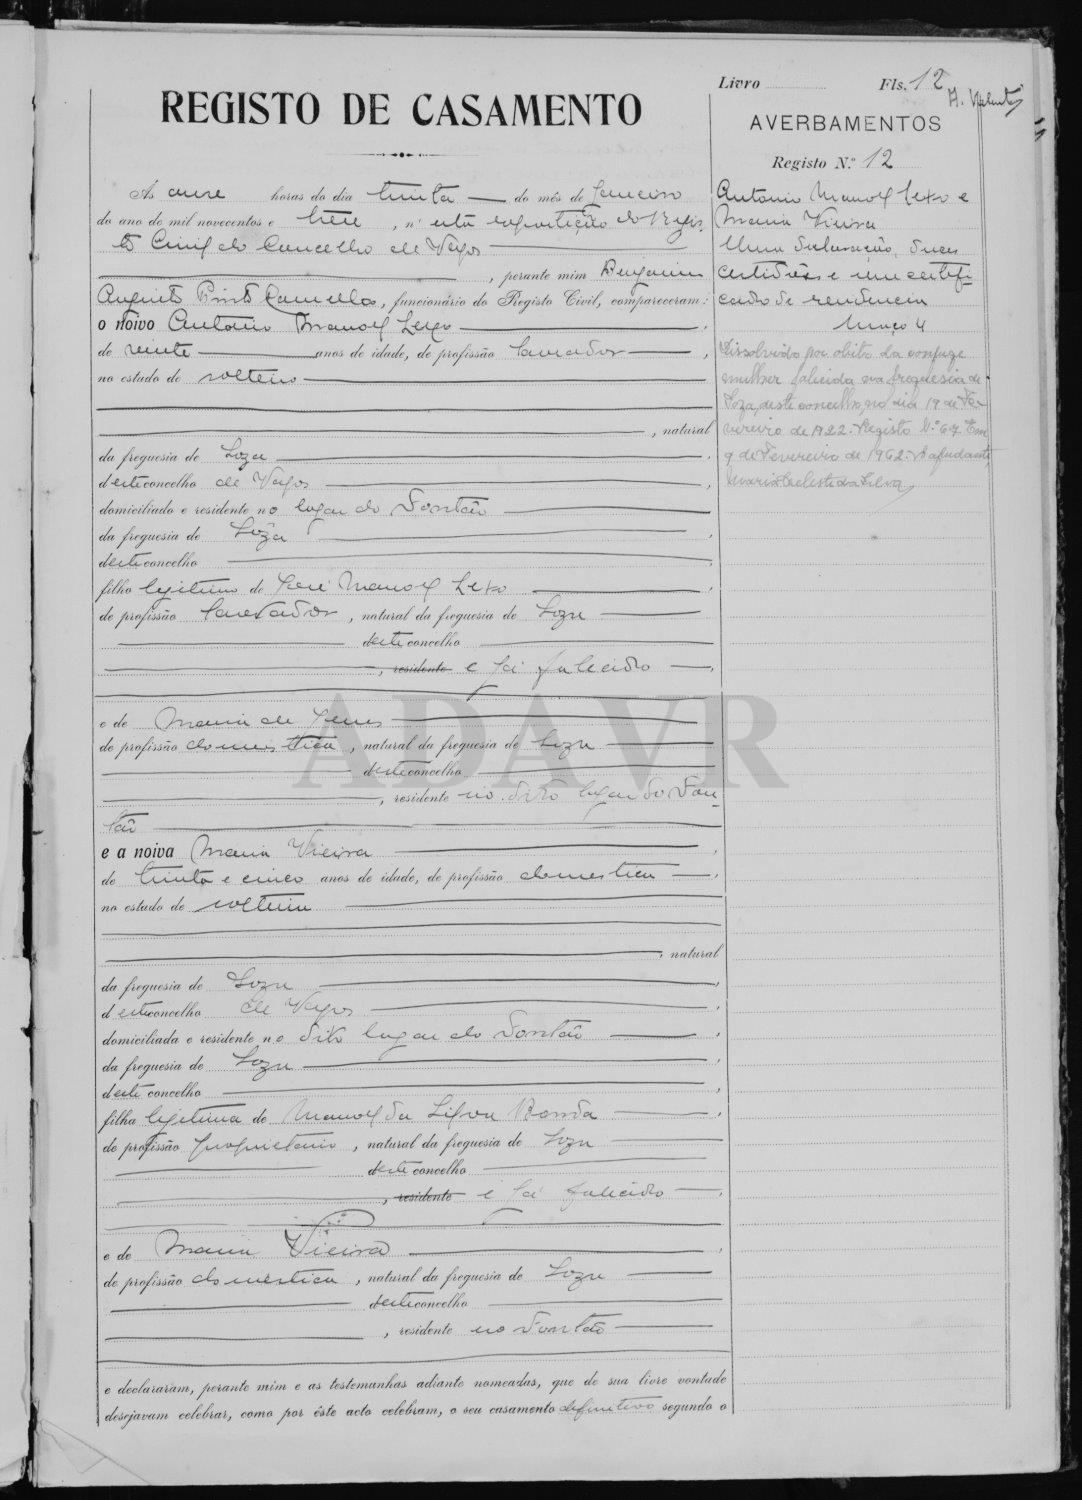 Livro Fls. 12
REGISTO DE CASAMENTO
AVERBAMENTOS
Registo N.º 12
As onze horas do dia trinta do mês de Janeiro
do ano de mil novecentos e treze, n'esta repartição do Regis-
to Civil do Concelho de Vagos
, perante mim Benjamim
Augusto Pinto Camello, funcionário do Registo Civil, compareceram:
o noivo Antonio Manoel Lexo
de vinte anos de idade, de profissão lavrador,
no estado de solteiro
, natural
da freguesia de Soza
deste concelho de Vagos
domiciliado e residente no logar do Fontão
da freguesia de Soza
deste concelho
filho legitimo de José Manoel Lexo
de profissão lavrador, natural da freguesia de Soza
deste concelho
, residente e já falecido
e de Maria de Jesus
de profissão domestica, natural da freguesia de Soza
deste concelho
, residente no dito logar do Fon-
tão
e a noiva Maria Vieira
de trinta e cinco anos de idade, de profissão domestica
no estado de solteira
, natural
da freguesia de Soza
deste concelho de Vagos
domiciliada e residente no dito logar do Fontão
da freguesia de Soza
deste concelho
filha legitima de Manoel da Silva
de profissão proprietario, natural da freguesia de Soza
deste concelho
, residente e já falecido
e de Maria Vieira
de profissão domestica, natural da freguesia de Soza
deste concelho
, residente no Fontão
e declararam, perante mim e as testemunhas adiante nomeadas, que de sua livre vontade
desejavam celebrar, como por êste acto celebram, o seu casamento definitivo segundo o
Antonio Manoel Lexo e
Maria Vieira
Uma declaração, duas
certidões e um certifi-
cado de residencia
Maço 4
Dissolvido por obito da conjuge
mulher falecida na freguesia de
Soza, deste concelho, no dia 19 de Fe-
vereiro de 1922. Registo N.º 67. Em
9 de Fevereiro de 1962. A ajudante,
Maria Celeste da Silva
ADAVR